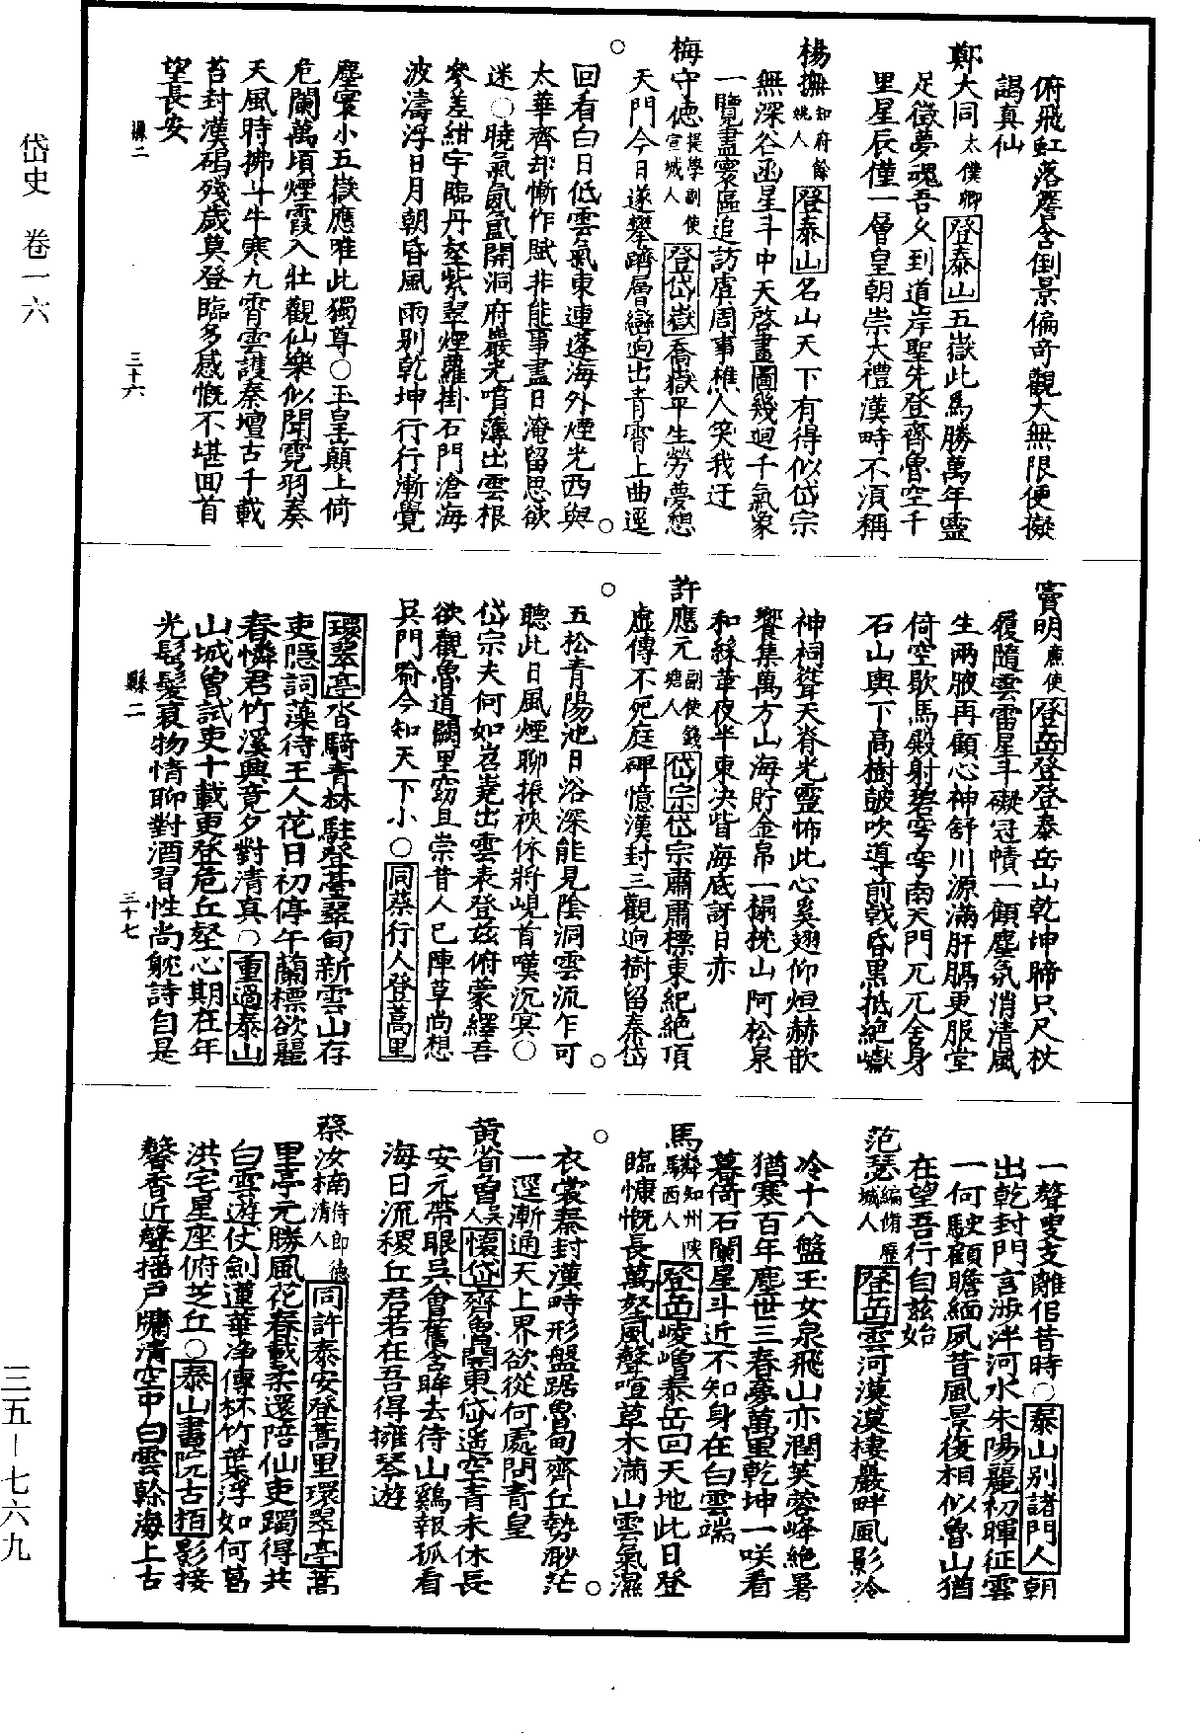 岱史 卷一六
俯飛虹落磴含倒景偏奇觀大無限便擬
謁真仙
鄭大同太僕卿登泰山五嶽此為勝萬年靈
足徵夢魂吾久到道岸聖先登齊魯空千
里星辰僅一層皇朝崇大禮漢畤不須稱
楊撫知府餘姚人登泰山名山天下有得似岱宗
無深谷函星斗中天啓畫圖幾迴千氣象
一覽盡寰區追訪虞周事樵人笑我迂
梅守德提學副使宣城人登岱嶽喬嶽平生勞夢想
天門今日遂攀躋層巒逈出青霄上曲逕
回看白日低雲氣東連蓬海外煙光西與
太華齊却慚作賦非能事盡日淹留思欲
迷○曉氣氤氳開洞府巖光噴薄出雲根
參差紺宇臨丹壑紫翠煙蘿掛石門滄海
波濤浮日月朝昏風雨別乾坤行行漸覺
塵寰小五嶽應惟此獨尊○玉皇巔上倚
危闌萬頃煙霞入壯觀仙樂似聞霓羽奏
天風時拂斗牛寒九霄雲護秦壇古千載
苔封漢碣殘歲莫登臨多感慨不堪回首
望長安
縣二
三十六
竇明廉使登岳登登泰岳山乾坤歸只尺杖
履隨雲雷星斗礙冠幘一顧塵氛消清風
生兩腋再顧心神舒川源滿肝膈更服堂
倚空歇馬殿射碧穹穹南天門兀兀金身
石山輿下高樹皷吹導前戟昏黑抵絕巘
神祠聳天脊光靈怖此心奐翅仰烜赫歆
饗集萬方山海貯金帛一榻枕山阿松泉
和絲革夜半東決眥海底訝日亦
許應元副使錢塘人岱宗岱宗肅肅標東紀絕頂
虛傳不死庭碑憶漢封三觀逈樹留秦岱
五松青陽池日浴深能見陰洞雲流乍可
聽此日風煙聊振袂休將峴首嘆沉冥○
岱宗夫何如岧嶤出雲表登茲俯蒙繹吾
欲觀魯道闕里窈且崇昔人已陳草尚想
吳門喻今知天下小○同蔡行人登蒿里
環翠亭沓騎青林駐登臺翠甸新雲山存
吏隱詞藻待王人花日初停午蘭標欲麗
春憐君竹溪興竟夕對清真○重過泰山
山城曾試吏十載更登危丘壑心期在年
光鬂髮衰物情聊對酒習性尚躭詩自是
縣二
三十七
一聲叟支離倍昔時○泰山別諸門人朝
出乾封門言涉泮河水朱陽麗初暉征雲
一何駛顧瞻緬夙昔風景後相似魯山猶
在望吾行自茲始
范瑟編脩歷城人登岳雲河漠漠棲巖畔風影泠
泠十八盤玉女泉飛山亦潤芙蓉峰絕暑
猶寒百年塵世三春夢萬里乾坤一咲看
暮倚石闌星斗近不知身在白雲端
馬驎知州陝西人登岳崚嶒泰岳回天地此日登
臨慷慨長萬壑風聲喧草木滿山雲氣濕
衣裳秦封漢畤形盤踞魯甸齊丘勢渺茫
一逕漸通天上界欲從何處問青皇
黃省曾吳人懷岱齊魯開東岱遥空青未休長
安元帶眼吳會舊含眸去待山鷄報孤看
海日流稷丘君若在吾得擁琴遊
蔡汝楠侍郎德清人同許泰安登蒿里環翠亭蒿
里亭元勝風花春載柔還陪仙吏躅得共
白雲遊仗劍蓮華净傳杯竹葉浮如何葛
洪宅星座俯芝丘○泰山書院古栢影接
聲香近聲搖戶牖清空中白雲幹海上古
三五—七六九